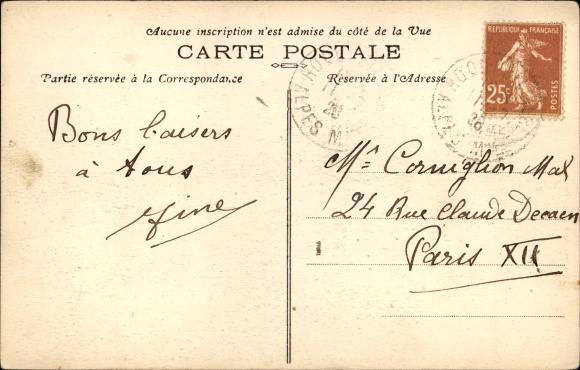 Aucune inscription n'est admise du côté de la Vue
CARTE POSTALE
Partie réservée à la Correspondance
Réservée à l'Adresse
REPUBLIQUE FRANÇAISE
25c
POSTES
ALPES
Bons baisers
à tous
Fine
Mr Corniglion Mal
24 Rue Claude Decaen
Paris XII